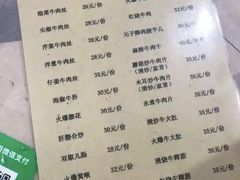 泡菜牛肉丝 28元/份
尖椒牛肉丝 28元/份
芹菜牛肉丝 28元/份
洋葱牛肉丝 28元/份
仔姜牛肉丝 35元/份
泡椒牛肝 30元/份
火爆腰花 35元/份
肝腰合炒 35元/份
双椒儿肠 35元/份
火爆黄喉 32元/份
红烧牛肉
元子酥肉烧笋儿 30元/份
麻辣牛肉干 50元/份
蘑菇炒牛肉片 30元/份
(清炒/家常)
木耳炒牛肉片 30元/份
(清炒/家常)
水煮牛肉片 30元/份
清炒牛大肚 35元/份
火爆牛大肚 35元/份
清烧牛蹄筋 35元/份
红烧牛蹄筋 35元/份
微信支付